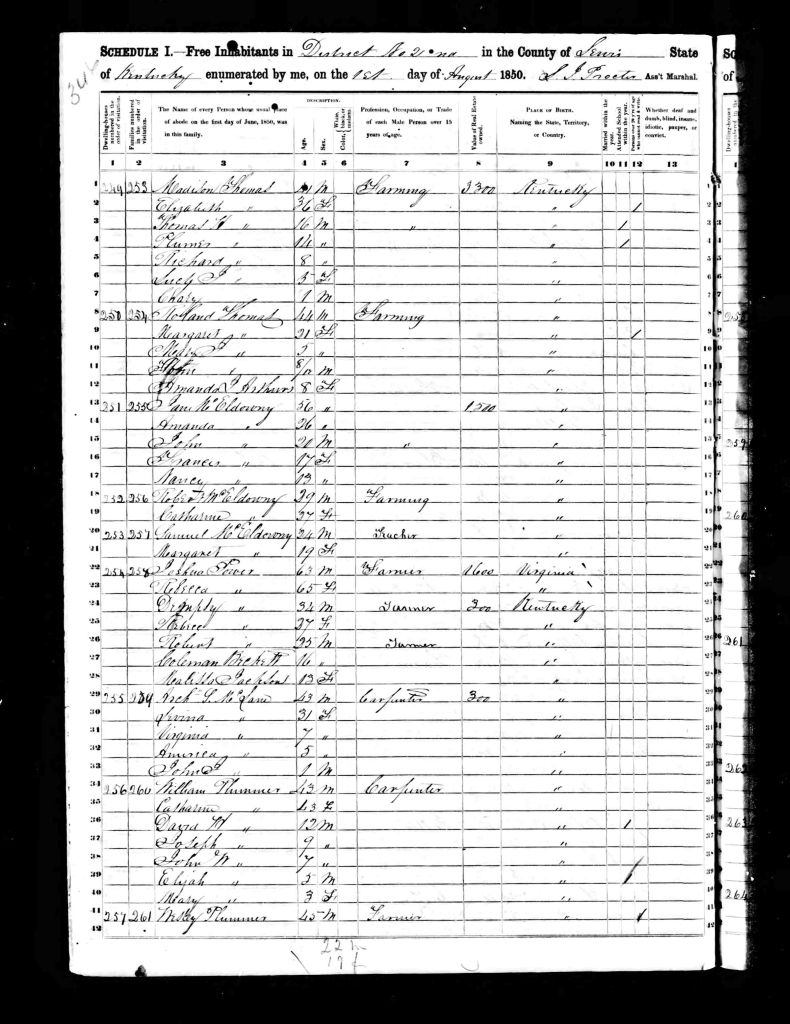 SCHEDULE I.—Free Inhabitants in District No 2nd in the County of Lewis State
of Kentucky enumerated by me, on the 1st day of August 1850. Ass't Marshal.
Dwelling-houses numbered in the order of visitation.
Families numbered in the order of visitation.
The Name of every Person whose usual place of abode on the first day of June, 1850, was in this family.
DESCRIPTION.
Age.
Sex.
Color, White, black, or mulatto.
Profession, Occupation, or Trade of each Male Person over 15 years of age.
Value of Real Estate owned.
PLACE OF BIRTH. Naming the State, Territory, or Country.
Married within the year.
Attended School within the year.
Persons over 20 y'rs of age who cannot read & write.
Whether deaf and dumb, blind, insane, idiotic, pauper, or convict.
1 2 3 4 5 6 7 8 9 10 11 12 13
1 249 253 Madison Thomas 41 M Farming 3300 Kentucky 1
2 Elizabeth " 36 F " 1 2
3 Thomas H " 16 M " " 1 3
4 Plumer " 14 " " 1 4
5 Richard " 8 " " 5
6 Lucy J " 5 F " 6
7 1 M " 7
8 250 254 Thomas 44 M Farming " 8
9 Margaret " 21 F " 1 9
10 Mary J " 2 " " 10
11 John " 8/12 M " 11
12 Amanda J Arthurs 8 F " 12
13 251 255 Jane McEldowny 56 " 1500 " 13
14 Amanda " 26 " " 14
15 John " 20 M " " 15
16 Frances " 17 F " 16
17 Nancy " 13 " " 17
18 252 256 Robert McEldowny 29 M Farming " 18
19 Catharine " 27 F " 19
20 253 257 Samuel McEldowny 24 M Teacher " 20
21 Margaret " 19 F " 21
22 254 258 Joshua Power 63 M Farmer 1600 Virginia 22
23 Rebecca " 65 F " 23
24 " 34 M Farmer 300 Kentucky 24
25 " 27 F " 25
26 Robert " 25 M Farmer " 26
27 Coleman Beckett 16 " " 27
28 Malissa Jackson 13 F " 28
29 255 259 Arch S. McLane 43 M Carpenter 300 " 29
30 " 31 F " 30
31 Virginia " 7 " " 31
32 America " 5 " " 32
33 John F " 1 M " 33
34 256 260 William Plummer 43 M Carpenter " 34
35 Catharine " 43 F " 35
36 David W " 12 M " 1 36
37 Joseph " 9 " " 37
38 John W " 7 " " 38
39 Elijah " 5 M " 1 39
40 Mary " 3 F " 40
41 257 261 Wesley Plummer 45 M Farmer " 1 41
42 42
22 m
19 f